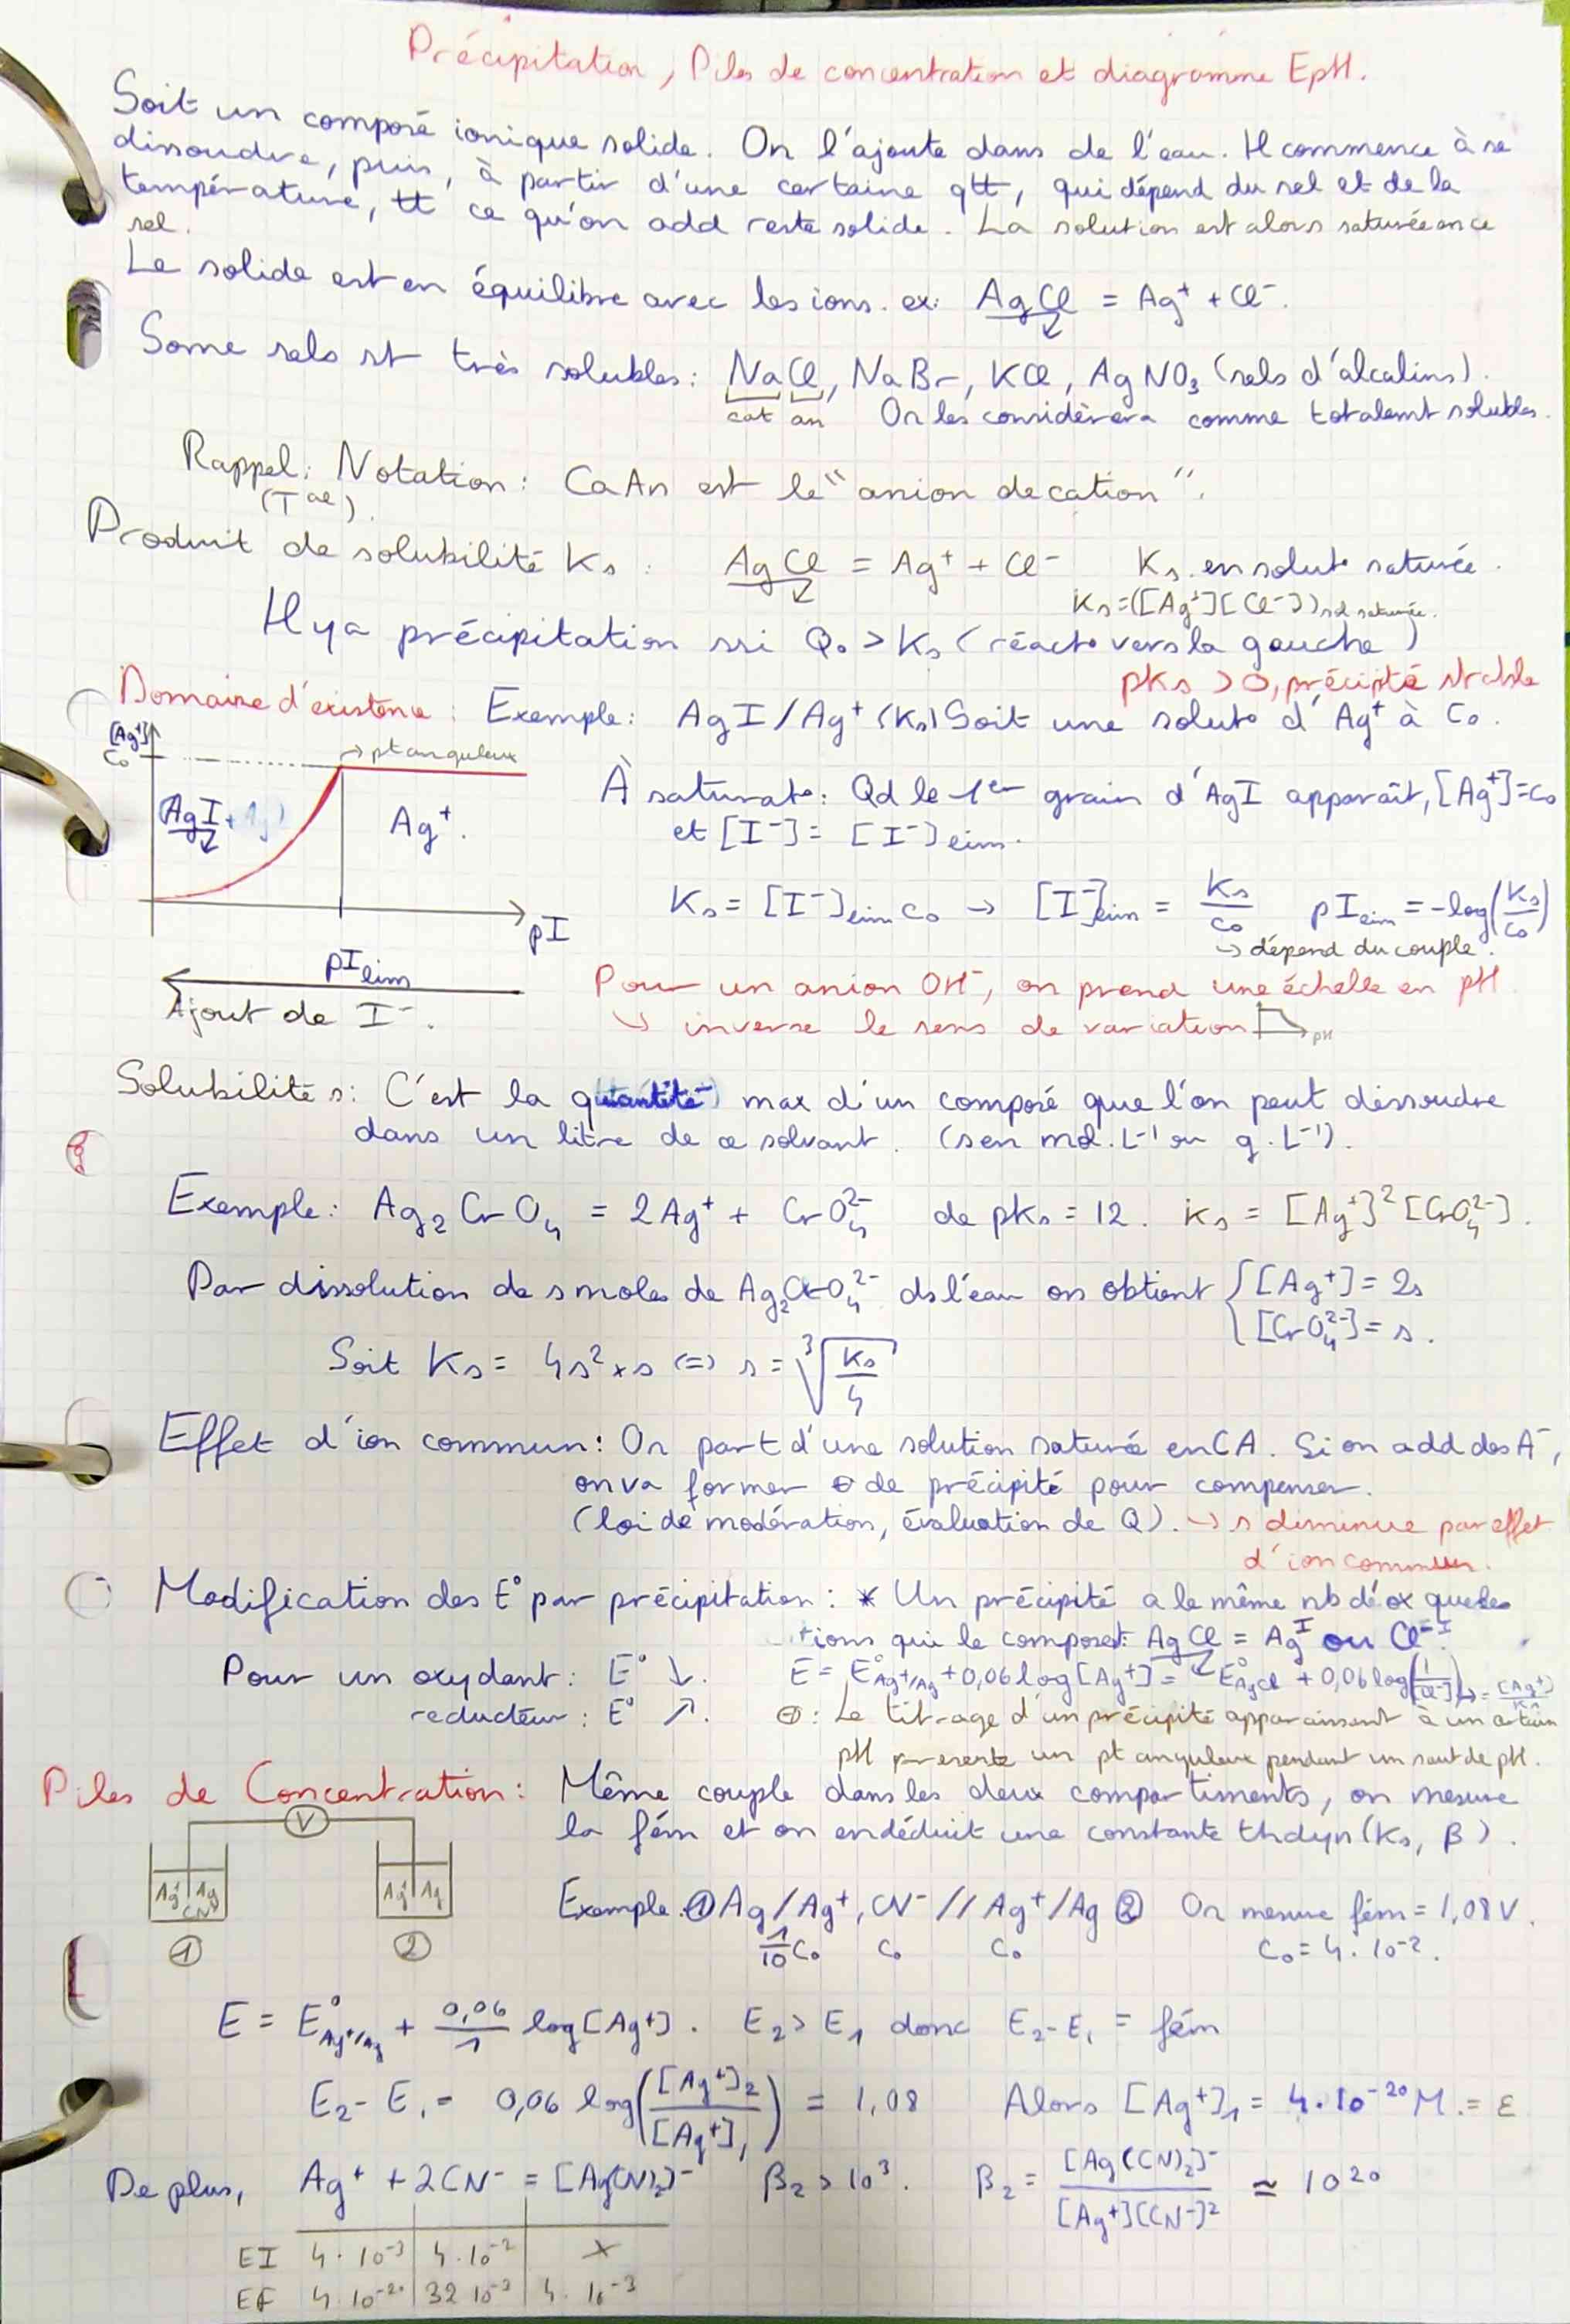 Précipitation, Piles de concentration et diagramme EpH.
Soit un composé ionique solide. On l'ajoute dans de l'eau. Il commence à se
dissoudre, puis, à partir d'une certaine qtt, qui dépend du sel et de la
température, tt ce qu'on add reste solide. La solution est alors saturée en ce
sel.
Le solide est en équilibre avec les ions. ex: AgCl = Ag⁺ + Cl⁻.
Some sels st très solubles: NaCl, NaBr, KCl, AgNO₃ (sels d'alcalins).
cat an On les considèrera comme totalemt solubles.
Rappel: Notation: CaAn est le "anion de cation".
(Tale)
Produit de solubilité Ks: AgCl = Ag⁺ + Cl⁻ Ks en solut° saturée.
Ks=([Ag⁺][Cl⁻])sol saturée.
Il y a précipitation ssi Q₀ > Ks (réact° vers la gauche)
pKs > 0, précipité stable
Domaine d'existence: Exemple: AgI/Ag⁺ (Ks) Soit une solut° d'Ag⁺ à C₀.
[Ag⁺]
C₀
→ pt anguleux
AgI + Ag⁺
Ag⁺.
pI
pI lim
Ajout de I⁻.
À saturat°: Qd le 1er grain d'AgI apparaît, [Ag⁺]=C₀
et [I⁻] = [I⁻]lim.
Ks = [I⁻]lim C₀ → [I⁻]lim = Ks/C₀ pI lim = -log(Ks/C₀)
↳ dépend du couple.
Pour un anion OH⁻, on prend une échelle en pH.
↳ inverse le sens de variation pH
Solubilité s: C'est la quantité max d'un composé que l'on peut dissoudre
dans un litre de ce solvant. (s en mol.L⁻¹ ou g.L⁻¹).
Exemple: Ag₂CrO₄ = 2Ag⁺ + CrO₄²⁻ de pKs = 12. Ks = [Ag⁺]²[CrO₄²⁻].
Par dissolution de s moles de Ag₂CrO₄²⁻ ds l'eau on obtient { [Ag⁺] = 2s
[CrO₄²⁻] = s.
Soit Ks = 4s² × s ⇔ s = ∛(Ks/4)
Effet d'ion commun: On part d'une solution saturée en CA. Si on add des A⁻,
on va former ⊕ de précipité pour compenser.
(loi de modération, évaluation de Q). → s diminue par effet
d'ion commun.
Modification des E° par précipitation: * Un précipité a le même nb d'ox que les
ions qui le composent: AgCl = Ag^I ou Cl^-I.
Pour un oxydant: E° ↓. E = E°Ag⁺/Ag + 0,06 log[Ag⁺] = E°AgCl + 0,06 log(1/[Cl⁻]) ↳ = [Ag⁺]/Ks
reducteur: E° ↗. ⊕: Le titrage d'un précipité apparaissant à un certain
pH presente un pt anguleux pendant un saut de pH.
Piles de Concentration: Même couple dans les deux compartiments, on mesure
la fém et on en déduit une constante thdyn (Ks, β).
V
Ag⁺ Ag
CN⁻
Ag⁺ Ag
① ②
Exemple. ① Ag/Ag⁺, CN⁻ // Ag⁺/Ag ② On mesure fém = 1,08 V.
1/10 C₀ C₀ C₀ C₀ = 4.10⁻².
E = E°Ag⁺/Ag + 0,06/1 log[Ag⁺]. E₂ > E₁ donc E₂-E₁ = fém
E₂-E₁ = 0,06 log([Ag⁺]₂/[Ag⁺]₁) = 1,08 Alors [Ag⁺]₁ = 4.10⁻²⁰ M. = ε
De plus, Ag⁺ + 2CN⁻ = [Ag(CN)₂]⁻ β₂ > 10³. β₂ = [Ag(CN)₂]⁻/[Ag⁺][CN⁻]² ≃ 10²⁰
EI 4.10⁻³ 4.10⁻² X
EF 4.10⁻²⁰ 32 10⁻³ 4.10⁻³